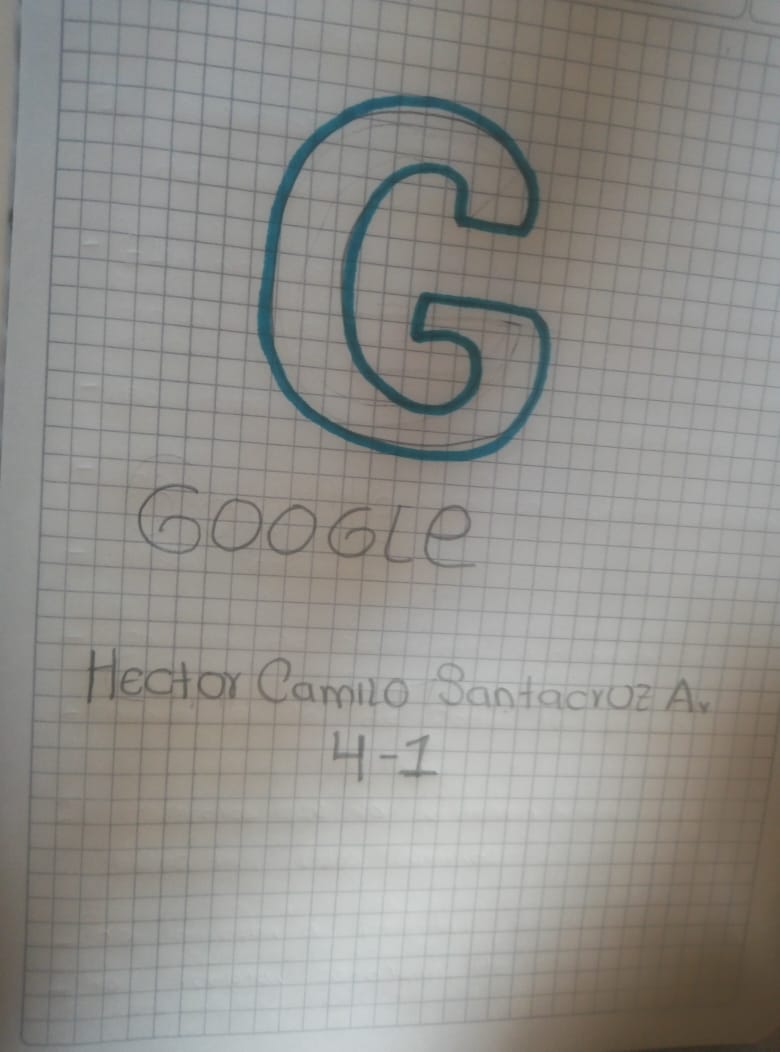 G
GOOGLe
Hector Camilo Santacroz A.
4-1